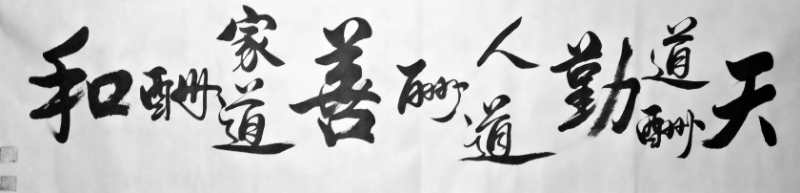 天道酬勤人道酬善家道酬和